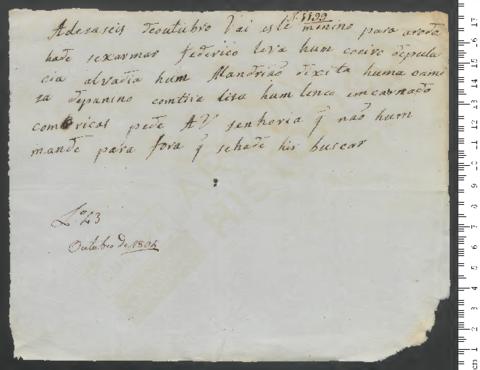 f. 1199
Adesaseis deoutubro Vai este minino para aroda
hade sexarmar federico leva hum coeiro depula
cia alvadia hum Mandriaõ dexita huma cami
sa depanino comtira lisa hum lenco emcarnado
com ricas pede AV senhoria q̃ naõ hum
mande para fora q̃ sehade hir buscar
Lo 23
Outubro de 1804